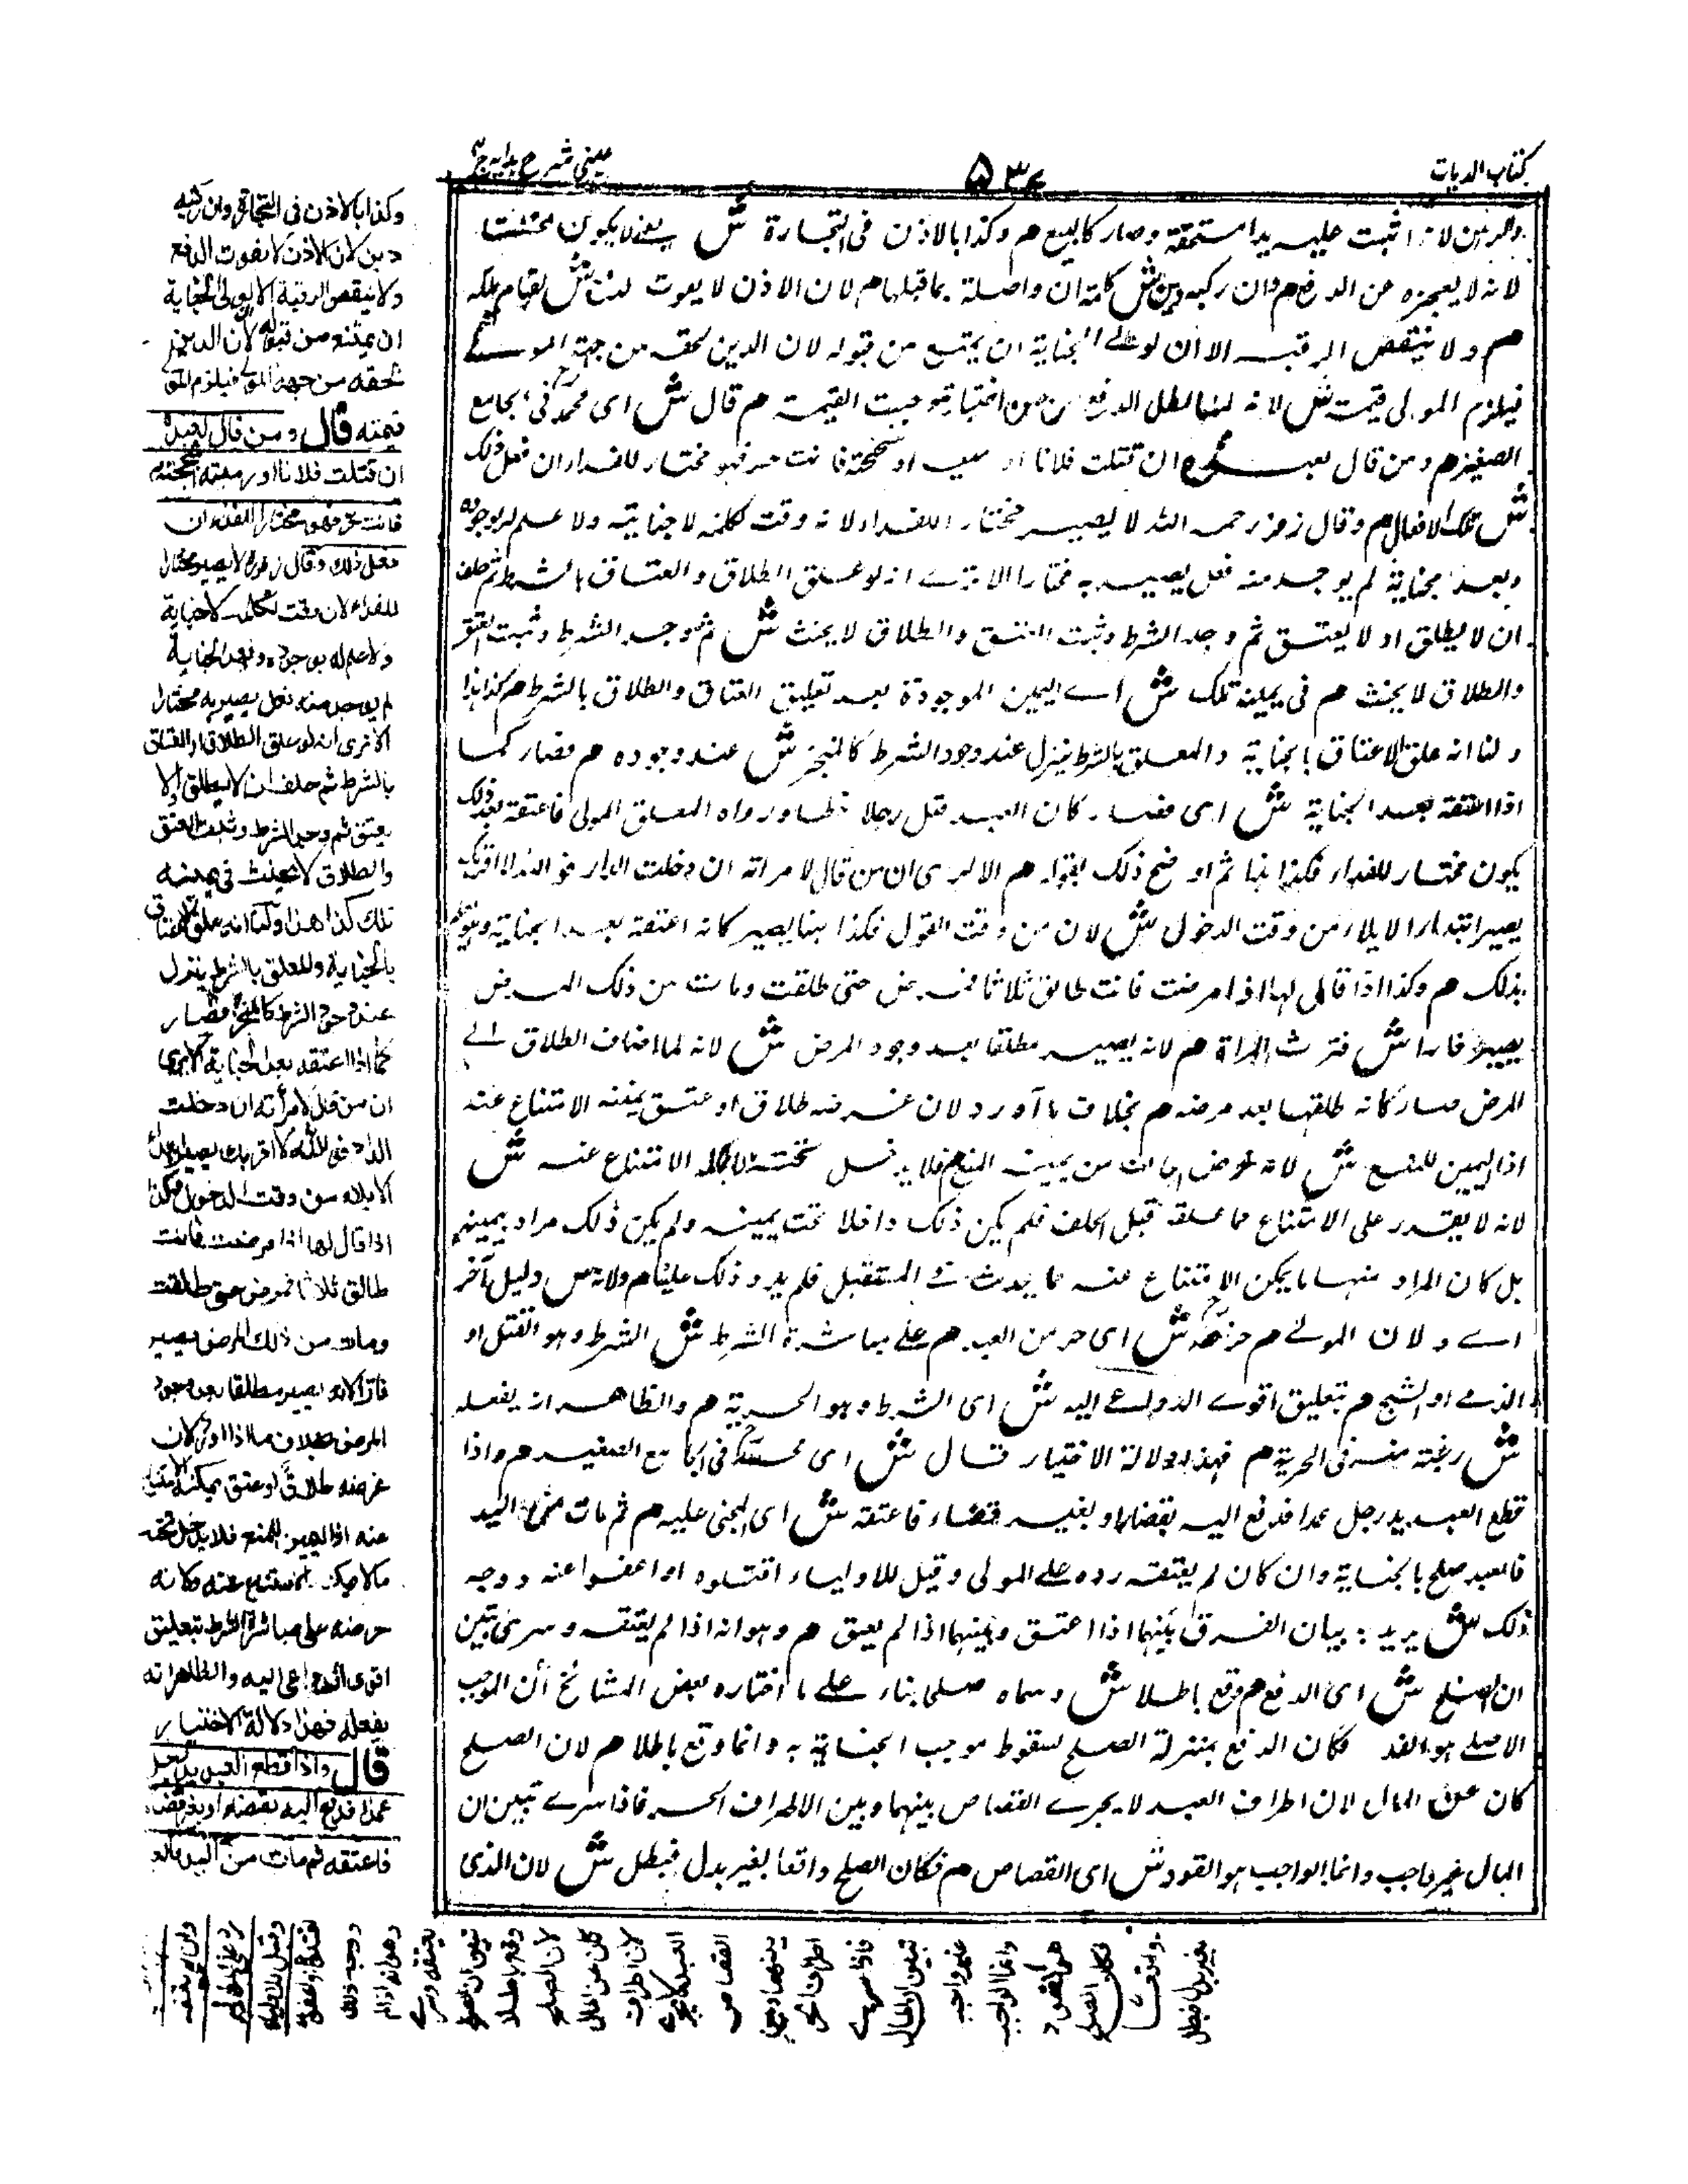 كتاب الديات
۵۳۶
عينى شرح هدايه ج۴
والرهن لانه اثبت عليه يدا مستحقة وصار كالبيع هم وكذا بالاذن فى التجارة ش يعنى لا يكون مختارا
لانه لا يعجزه عن الدفع هم وان ركبه دين ش كلمة ان واصلة بما قبلها هم لان الاذن لا يفوت الدفع ش لقيام ملكه
هم ولا ينتقص الرقبة الا ان لولى الجناية ان يمتنع من قبوله لان الدين لحقه من جهة المولى
فيلزم المولى قيمته ش لانه لما بطل الدفع من اختياره وجبت القيمة هم قال ش اى محمد فى الجامع
الصغير هم ومن قال لعبده ان قتلت فلانا او رميته او شججته فانت حر فهو مختار للفداء ان فعل ذلك
ش تلك الافعال هم وقال زفر رحمه الله لا يصير مختارا للفداء لانه وقت تكلمه لا جناية ولا علم له بوجوده
وبعد الجناية لم يوجد منه فعل يصير به مختارا الا ترى انه لو علق الطلاق والعتاق بالشرط ثم حلف
ان لا يطلق او لا يعتق ثم وجد الشرط وثبت العتق والطلاق لا يحنث ش ثم وجد الشرط وثبت العتق
والطلاق لا يحنث هم فى يمينه تلك ش اى اليمين الموجودة بعد تعليق العتاق والطلاق بالشرط هم كذا هذا
ولنا انه علق الاعتاق بالجناية والمعلق بالشرط ينزل عند وجود الشرط كالمنجز ش عند وجوده هم فصار كما
اذا اعتقه بعد الجناية ش اى فصار كان العبد قتل رجلا خطا ورواه المعلق المولى فاعتقه بعد ذلك
يكون مختار للفداء فكذا هذا ثم اوضح ذلك بقوله هم الا ترى ان من قال لامراته ان دخلت الدار فوالله لا اقربك
يصير ابتداء الايلاء من وقت الدخول ش لان من وقت القول فكذا هنا يصير كانه اعتقه بعد الجناية
بذلك هم وكذا اذا قال لها اذا مرضت فانت طالق ثلاثا فمرض حتى طلقت ومات من ذلك المرض
يصير فارا ش فترث المراة هم لانه يصير مطلقا بعد وجود المرض ش لانه لما اضاف الطلاق الى
المرض صار كانه طلقها بعد مرضه هم بخلاف ما اورد لان غرضه طلاق او عتق يمكنه الامتناع عنه
اذ اليمين للمنع ش لانه هم فلا يدخل تحته ما لا يمكنه الامتناع عنه ش
لانه لا يقدر على الامتناع مما علقه قبل الحلف فلم يكن ذلك داخلا تحت يمينه ولم يكن ذلك مراد بيمينه
بل كان المراد منها ما يمكن الامتناع عنه مما يحدث فى المستقبل فلم يرد ذلك علينا هم ولانه ش دليل آخر
اى ولان المولى هم حرضه ش اى حرض العبد هم على مباشرة الشرط ش الشرط وهو القتل او
الرمى او الشج هم بتعليق اقوى الدواعى اليه ش اى الشرط وهو الحرية هم والظاهر انه يفعله
ش رغبته منه فى الحرية هم فهذا دلالة الاختيار قال ش اى محمد فى الجامع الصغير هم واذا
قطع العبد يد رجل عمدا فدفع اليه بقضاء او بغير قضاء فاعتقه ش اى المجنى عليه هم ثم مات من اليد
فالعبد صلح بالجناية وان كان لم يعتقه رده على المولى وقيل للاولياء اقتلوه او اعفوا عنه ووجه
ذلك ش يريد به بيان الفرق بينهما اذا اعتق وبينهما اذا لم يعتق هم وهو انه اذا لم يعتقه وسرى تبين
ان الصلح ش اى الدفع هم وقع باطلا ش وسماه صلحا بناء على ما اختاره بعض المشائخ ان الموجب
الاصلى هو الفداء فكان الدفع بمنزلة الصلح لسقوط موجب الجناية به وانما وقع باطلا هم لان الصلح
كان عن المال لان اطراف العبد لا يجرى القصاص بينهما وبين الاطراف الحر فاذا سرى تبين ان
المال غير واجب وانما الواجب هو القود ش اى القصاص هم فكان الصلح واقعا بغير بدل فبطل ش لان الذى
وكذا بالاذن فى التجارة وان ركبه
دين لان الاذن لا يفوت الدفع
ولا ينقص الرقبة الا ان لولى الجناية
ان يمتنع من قبوله لان الدين
لحقه من جهة المولى فيلزم المولى
قيمته قال ومن قال لعبده
ان قتلت فلانا او رميته او شججته
فانت حر فهو مختار للفداء ان
فعل ذلك وقال زفر لا يصير مختارا
للفداء لان وقت تكلمه لا جناية
ولا علم له بوجوده وبعد الجناية
لم يوجد منه فعل يصير به مختارا
الا ترى انه لو علق الطلاق او العتاق
بالشرط ثم حلف ان لا يطلق او لا
يعتق ثم وجد الشرط وثبت العتق
والطلاق لا يحنث فى يمينه
تلك كذا هذا ولنا انه علق الاعتاق
بالجناية والمعلق بالشرط ينزل
عند وجود الشرط كالمنجز فصار
كما اذا اعتقه بعد الجناية الا يرى
ان من قال لامرأته ان دخلت
الدار فوالله لا اقربك يصير ابتداء
الايلاء من وقت الدخول وكذا
اذا قال لها اذا مرضت فانت
طالق ثلاثا فمرض حتى طلقت
ومات من ذلك المرض يصير
فارا لانه يصير مطلقا بعد وجود
المرض بخلاف ما اذا اورد لان
غرضه طلاق او عتق يمكنه الامتناع
عنه اذ اليمين للمنع فلا يدخل تحته
ما لا يمكنه الامتناع عنه ولانه
حرضه على مباشرة الشرط بتعليق
اقوى الدواعى اليه والظاهر انه
يفعله فهذا دلالة الاختيار
قال واذا قطع العبد يد رجل
عمدا فدفع اليه بقضاء او بغير قضاء
فاعتقه ثم مات من اليد فالعبد
وان لم يعتقه
رد على المولى
وقيل للاولياء
اقتلوه او اعفوا
ووجه ذلك
وهو انه اذا لم
يعتقه وسرى
تبين ان الصلح
وقع باطلا
لان الصلح
كان عن المال
لان اطراف
العبد لا يجرى
القصاص
بينها وبين
اطراف الحر
فاذا سرى
تبين ان المال
غير واجب
وانما الواجب
هو القود
فكان الصلح
واقعا
بغير بدل فبطل